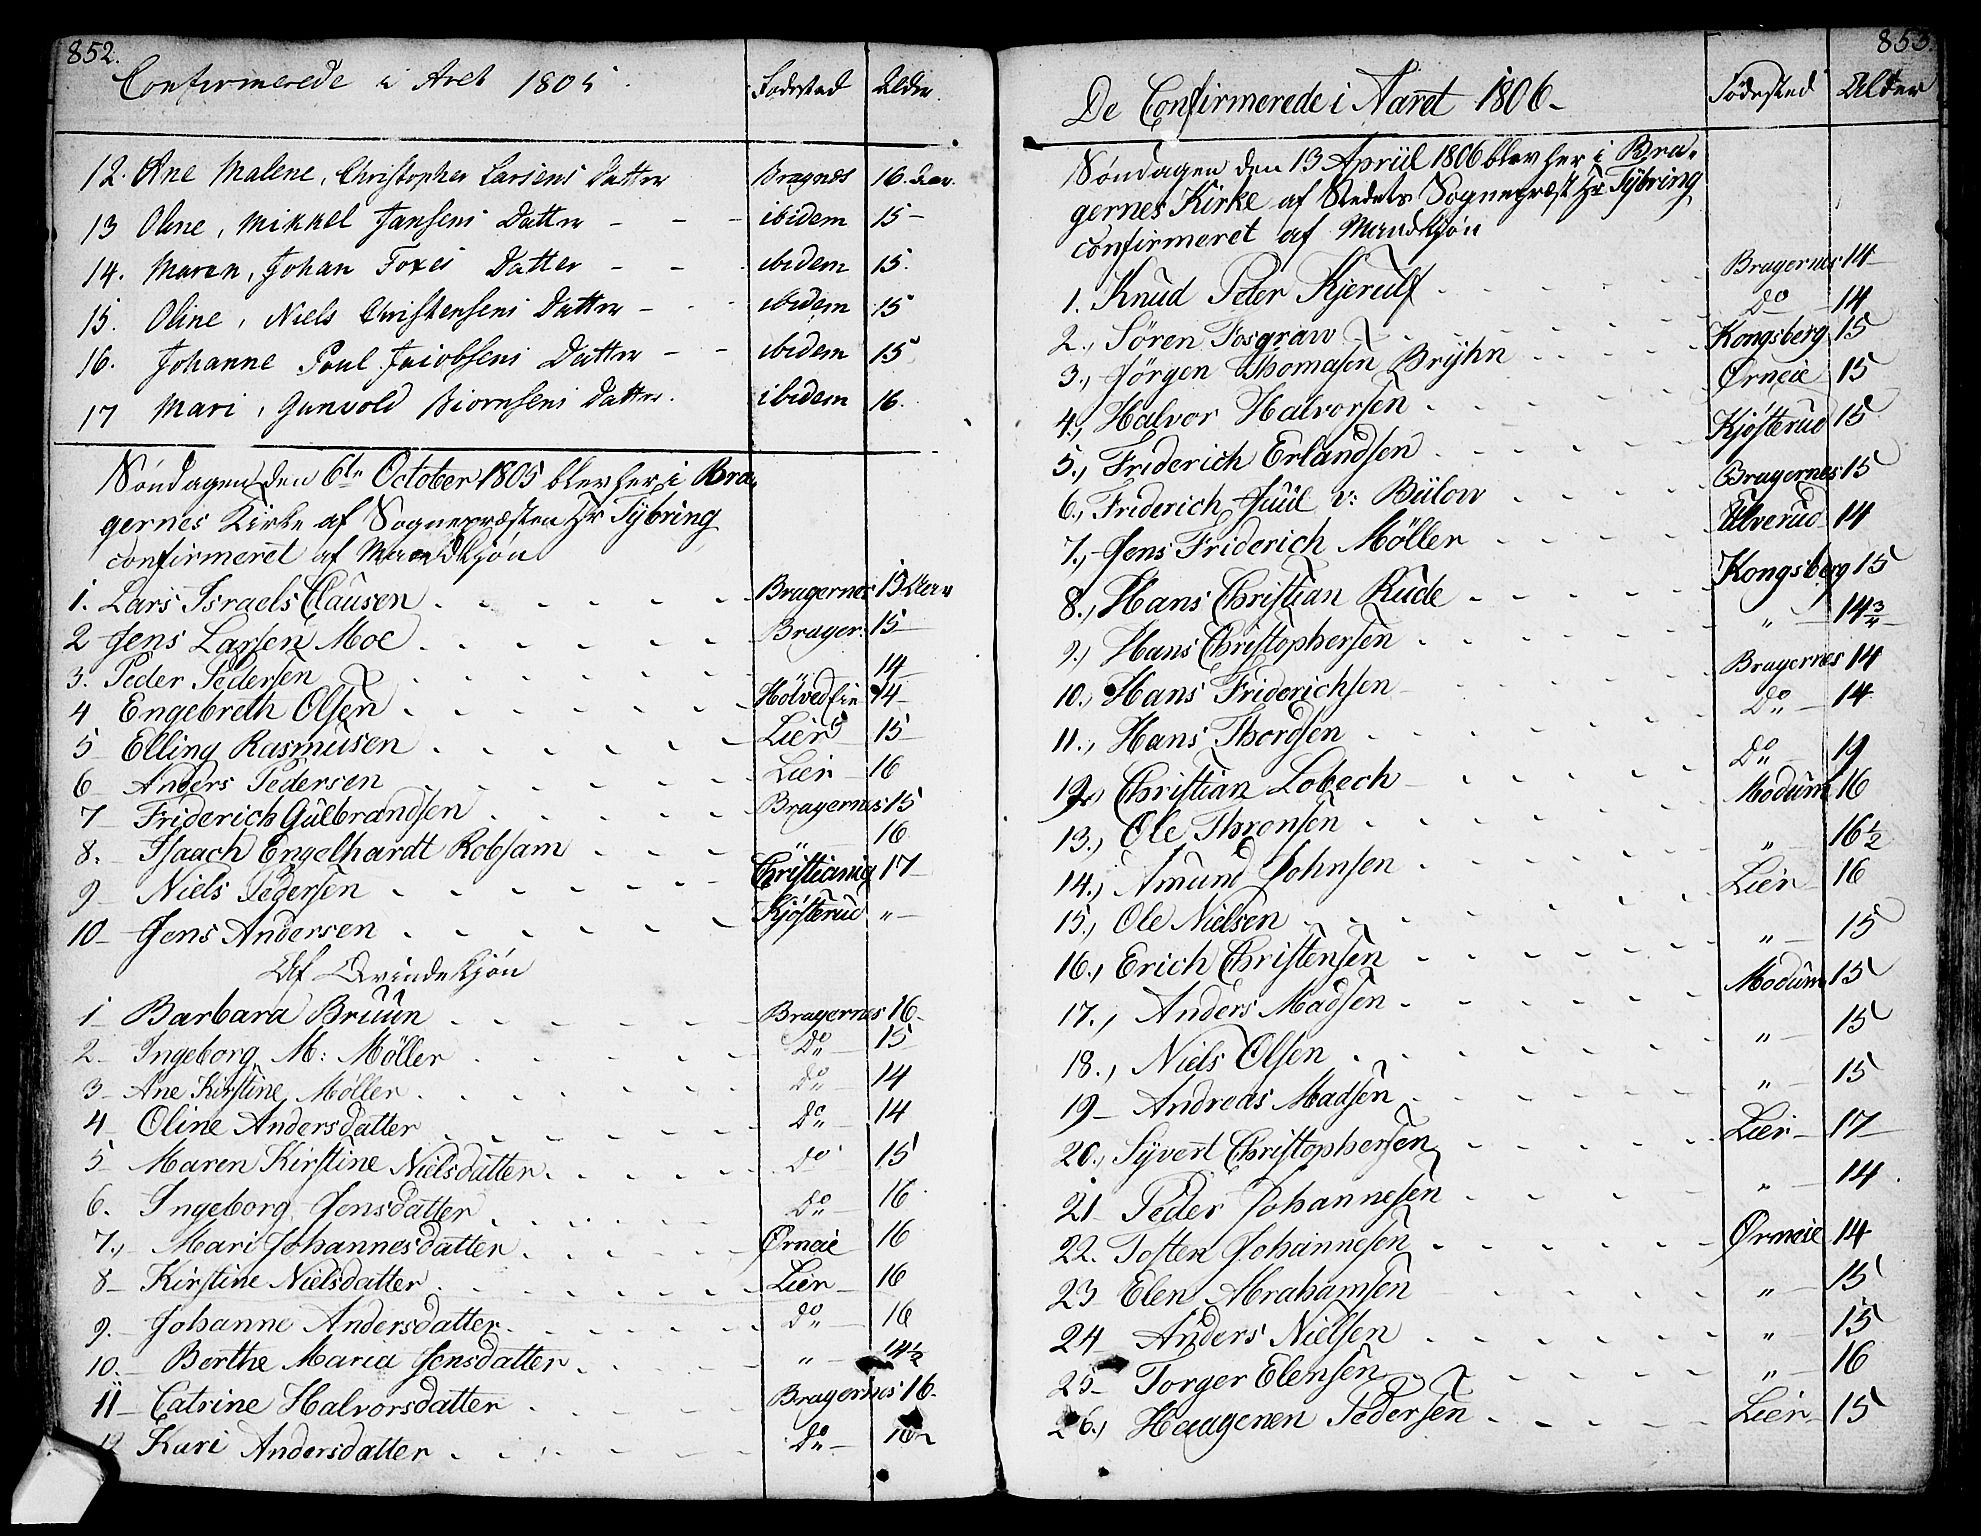 852.
Confirmerede i Aret 1805. Fødested Alder.
12. Ane Malene, Christopher Larsens Datter Bragnæs 16. Aar.
13 Oline, Mikkel Jansens Datter - - - ibidem 15-
14. Maren, Johan Foxes Datter - - - ibidem 15.
15. Oline, Niels Christensens Datter - - - ibidem 15
16. Johanne Poul Jacobsens Datter - - ibidem 15
17 Mari, Gunvold Biørnsens Datter. ibidem 16.
Søndagen den 6te October 1805 blev her i Bra-
gernes Kirke af Sognepræsten Hr Tybring
confirmeret af Mandkjøn
1. Lars Israels Clausen Bragernes 15 Aar
2 Jens Larsen Moe Brager: 15
3. Peder Pedersen 14
4 Engebreth Olsen 14-
5 Elling Rasmusen Lier 15-
6 Anders Pedersen Lier 16
7 Friderich Gulbrandsen Bragernes 15
8. Isaach Engelhardt Robsam " 16
9 Niels Pedersen Christiania 17
10- Jens Andersen Kjøsterud "-
Af Qvindekjøn
1- Barbara Bruun Bragernes 16.
2- Ingeborg M: Möller Do 15
3- Ane Kirstine Møller Do 14
4 Oline Andersdatter Do 14
5- Maren Kirstine Nielsdatter Do 15
6. Ingeborg Jensdatter Do 16
7., Mari Johannesdatter Ørneie 16
8- Kirstine Nielsdatter Lier 16
9.- Johanne Andersdatter Do 16
10.- Berthe Maria Jensdatter " 14½
11- Catrine Halvorsdatter Bragernes 16.
12 Kari Andersdatter Do 16
853.
De Confirmerede i Aaret 1806- Fødested Alder
Søndagen den 13 Apriil 1806 blev her i Bra-
gernes Kirke af Stedets Sognepræst Hr Tybring
confirmeret af Mandkjøn
1. Knud Peder Kjerulf Bragernes 14
2., Sören Fosgraw Do 14
3., Jörgen Thomasen Bryhn Kongsberg 15
4., Halvor Halvorsen Ørneie 15
5., Friderich Erlandsen Kjøsterud 15
6., Friderich Juul v: Bülow Bragernes 15
7., Jens Friderich Möller Ulverud 14
8., Hans Christian Rude Kongsberg 15
9., Hans Christophersen " 14¾
10., Hans Friderichsen Bragernes 14
11., Hans Thordsen Do 14
12., Christian Lobech Do 19
13., Ole Thronsen Modum 16
14., Amund Johnsen " 16½
15., Ole Nielsen Lier 16
16., Erich Christensen " 15
17., Anders Madsen Modum 15
18., Niels Olsen " 15
19- Andreas Madsen " 15
20., Syvert Christophersen Lier- 17-
21- Peder Johannesen " 14
22. Tosten Johannesen Ørneie 14
23- Elen Abrahamsen " 15
24- Anders Nielsen " 15
25- Torger Elensen " 16
26., Haagenen Pedersen Lier 15